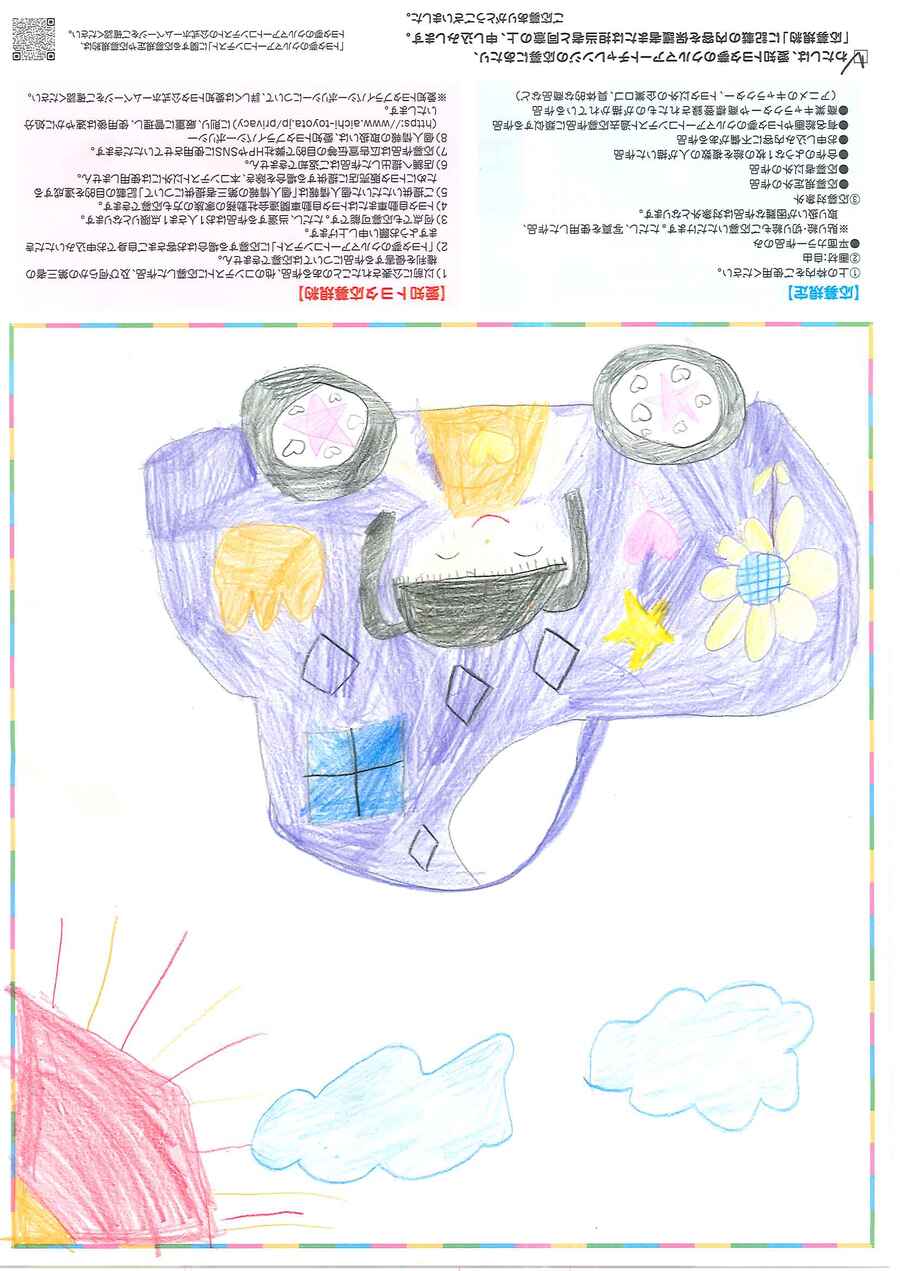 【応募規定】
①上の枠内をご使用ください。
②画材:自由
●平面カラー作品のみ
※貼り絵・切り絵もご応募いただけます。ただし、写真を使用した作品、
取り扱いが困難な作品は対象外となります。
③応募対象外
●応募規定外の作品
●応募者以外の作品
●合作のような1枚の絵を複数の人が描いた作品
●お申し込み内容に不備がある作品
●有名絵画やトヨタ夢のクルマアートコンテスト過去応募作品に類似する作品
●商業キャラクターや商標登録されたものが描かれている作品
(アニメのキャラクター、トヨタ以外の企業ロゴ、具体的な商品など)
【愛知トヨタ応募規約】
1)以前に公表されたことのある作品、他のコンテストに応募した作品、及び何らかの第三者の
権利を侵害する作品については応募できません。
2)「トヨタ夢のクルマアートコンテスト」に応募する場合はお客さまご自身で申込みいただき
ますようお願い申し上げます。
3)何点でも応募可能です。ただし、当選する作品はお1人さま1点限りとなります。
4)トヨタ自動車またはトヨタ自動車関連会社勤務の家族の方も応募できます。
5)ご提供いただいた個人情報は「個人情報の第三者提供について」記載の目的を達成する
ためにトヨタ販売店に提供する場合を除き、本コンテスト以外には使用しません。
6)店舗へ提出した作品はご返却できません。
7)応募作品は広告宣伝等の目的で弊社HPやSNSに使用させていただきます。
8)個人情報の取扱いは、愛知トヨタプライバシーポリシー
(https://www.aichi-toyota.jp/privacy)に則り、厳重に管理し、使用後は速やかに処分
いたします。
※愛知トヨタプライバシーポリシーについて、詳しくは愛知トヨタ公式ホームページをご確認ください。
わたしは、愛知トヨタ夢のクルマアートチャレンジの応募にあたり、
「応募規約」に記載の内容を保護者または担当者と同意の上、申し込みします。
ご応募ありがとうございました。
「トヨタ夢のクルマアートコンテスト」に関する応募規定や応募規約は、
トヨタ夢のクルマアートコンテストの公式ホームページをご確認ください。